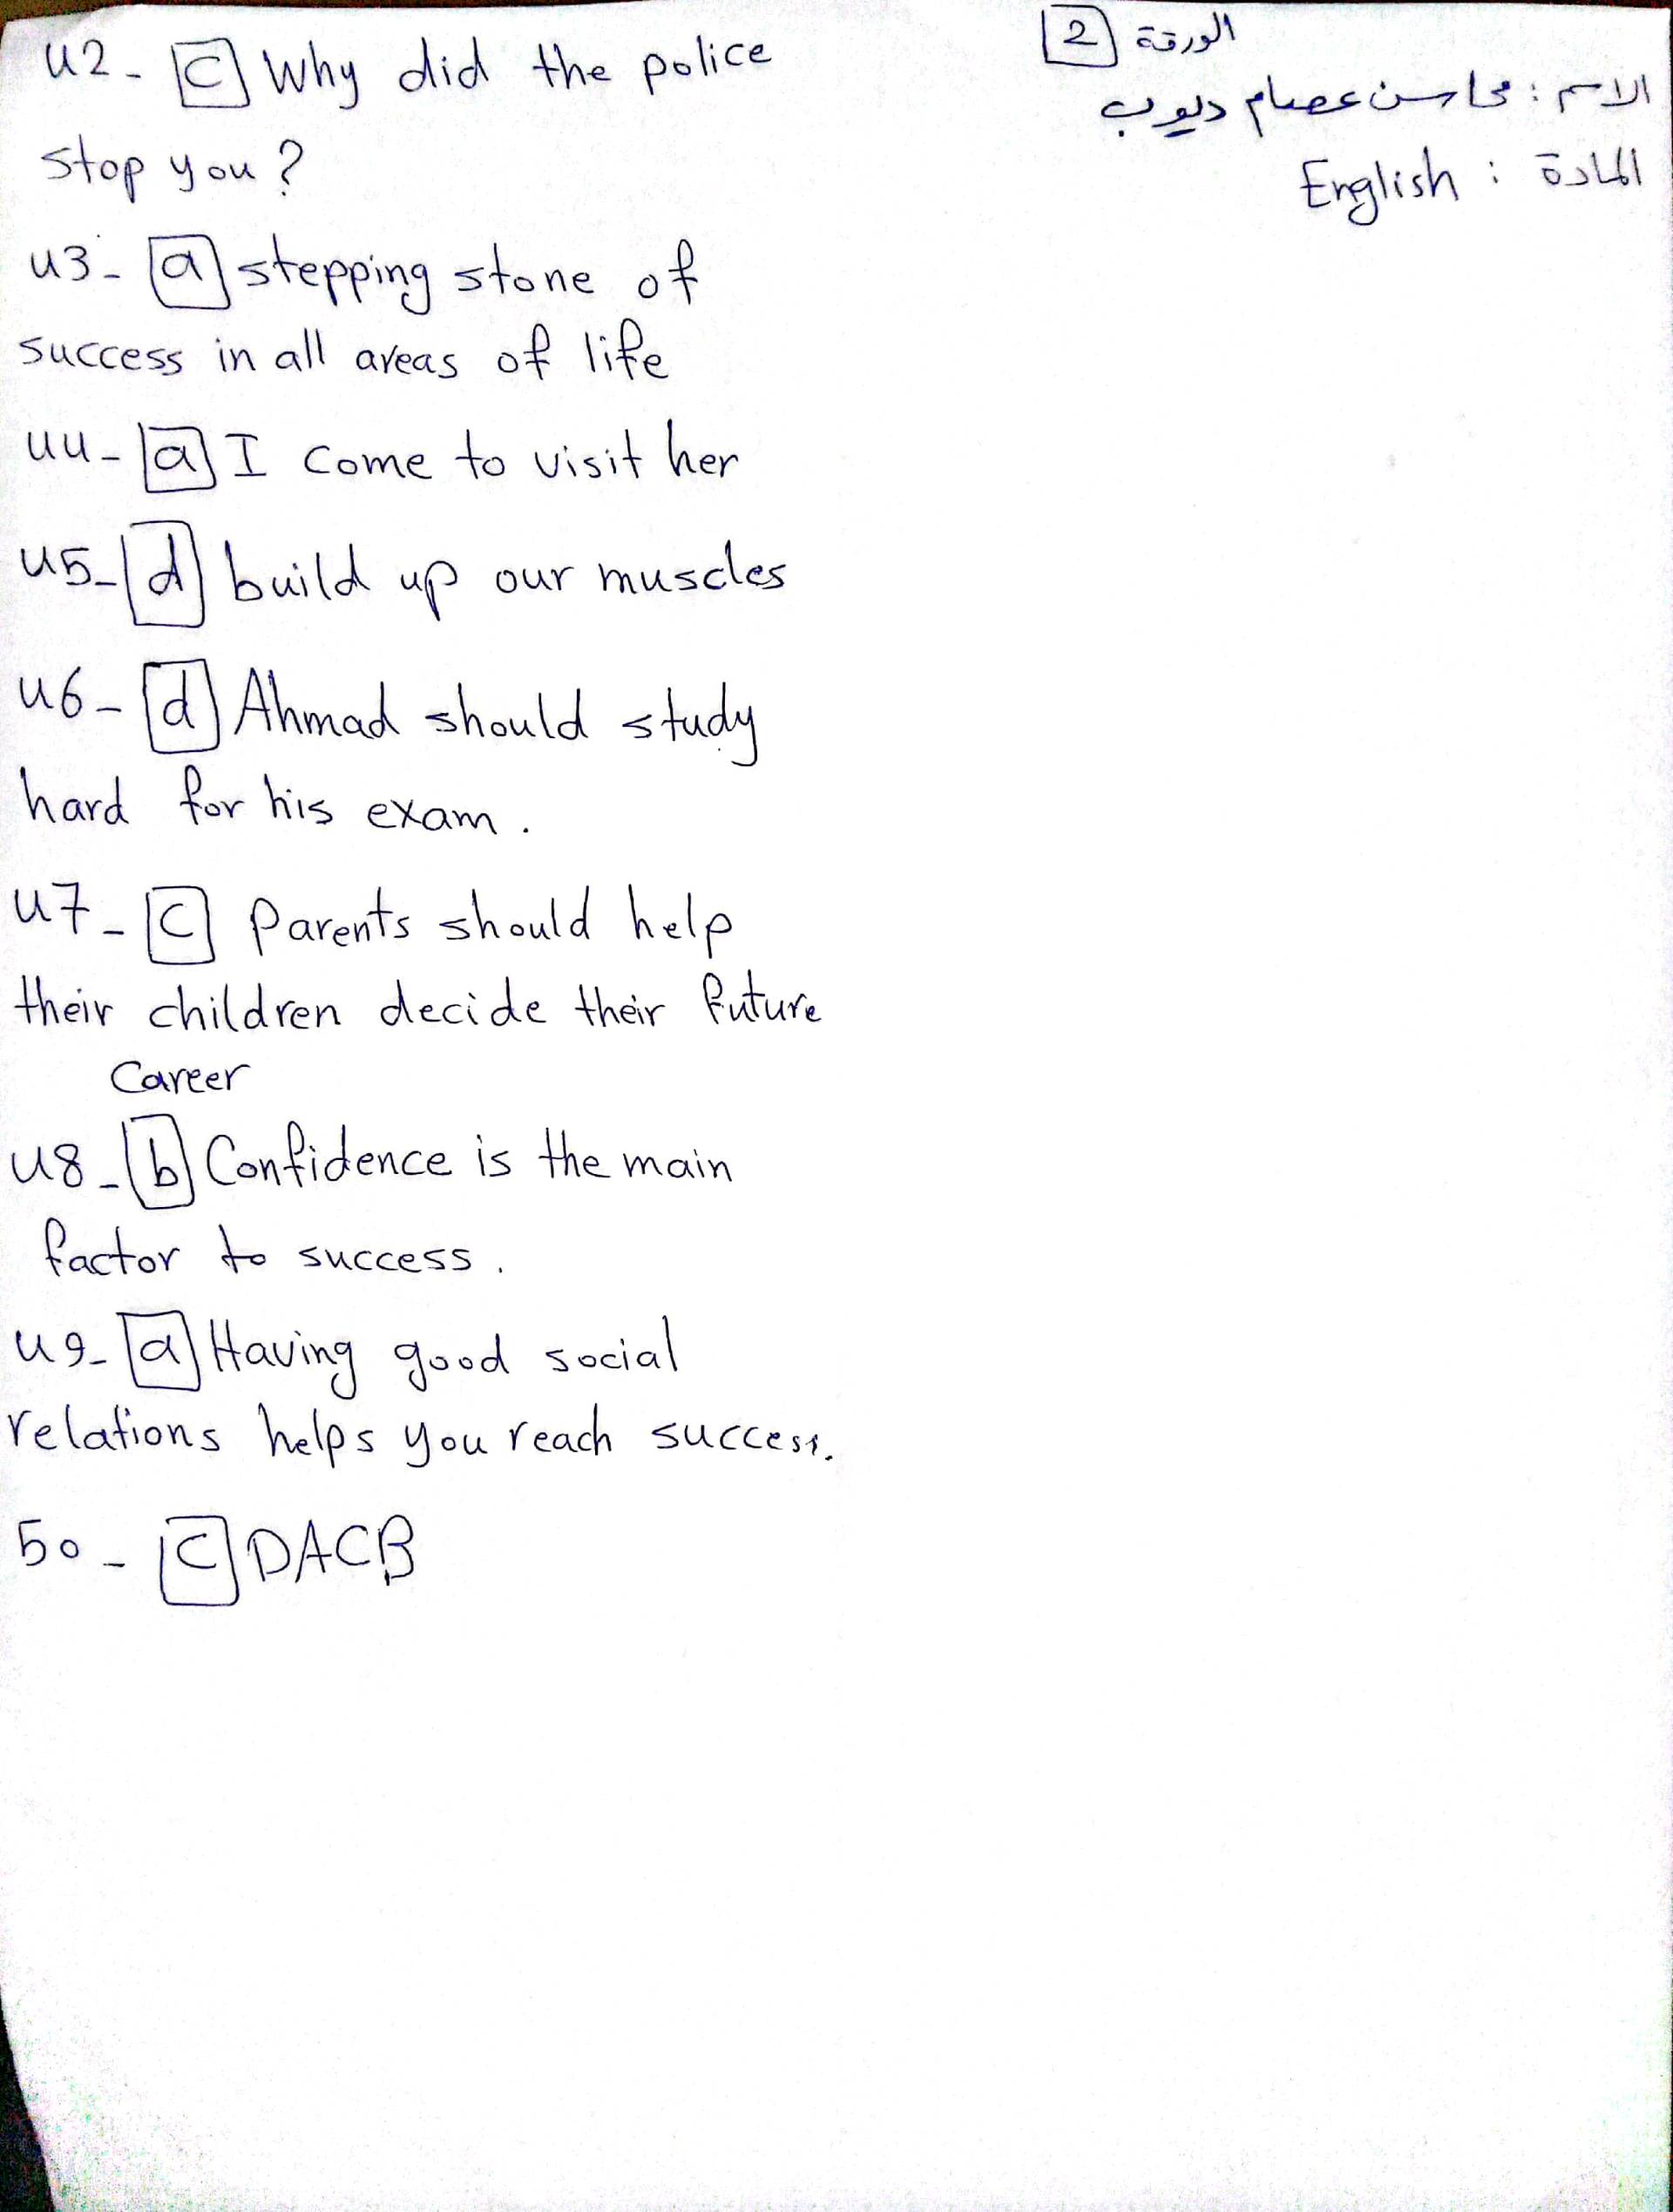 الورقة 2
الاسم : محاسن عصام ديوب
المادة : English
42- c Why did the police
stop you?
43- a stepping stone of
success in all areas of life
44- a I come to visit her
45- d build up our muscles
46- d Ahmad should study
hard for his exam.
47- c Parents should help
their children decide their future
Career
48- b Confidence is the main
factor to success.
49- a Having good social
relations helps you reach success.
50- c DACB